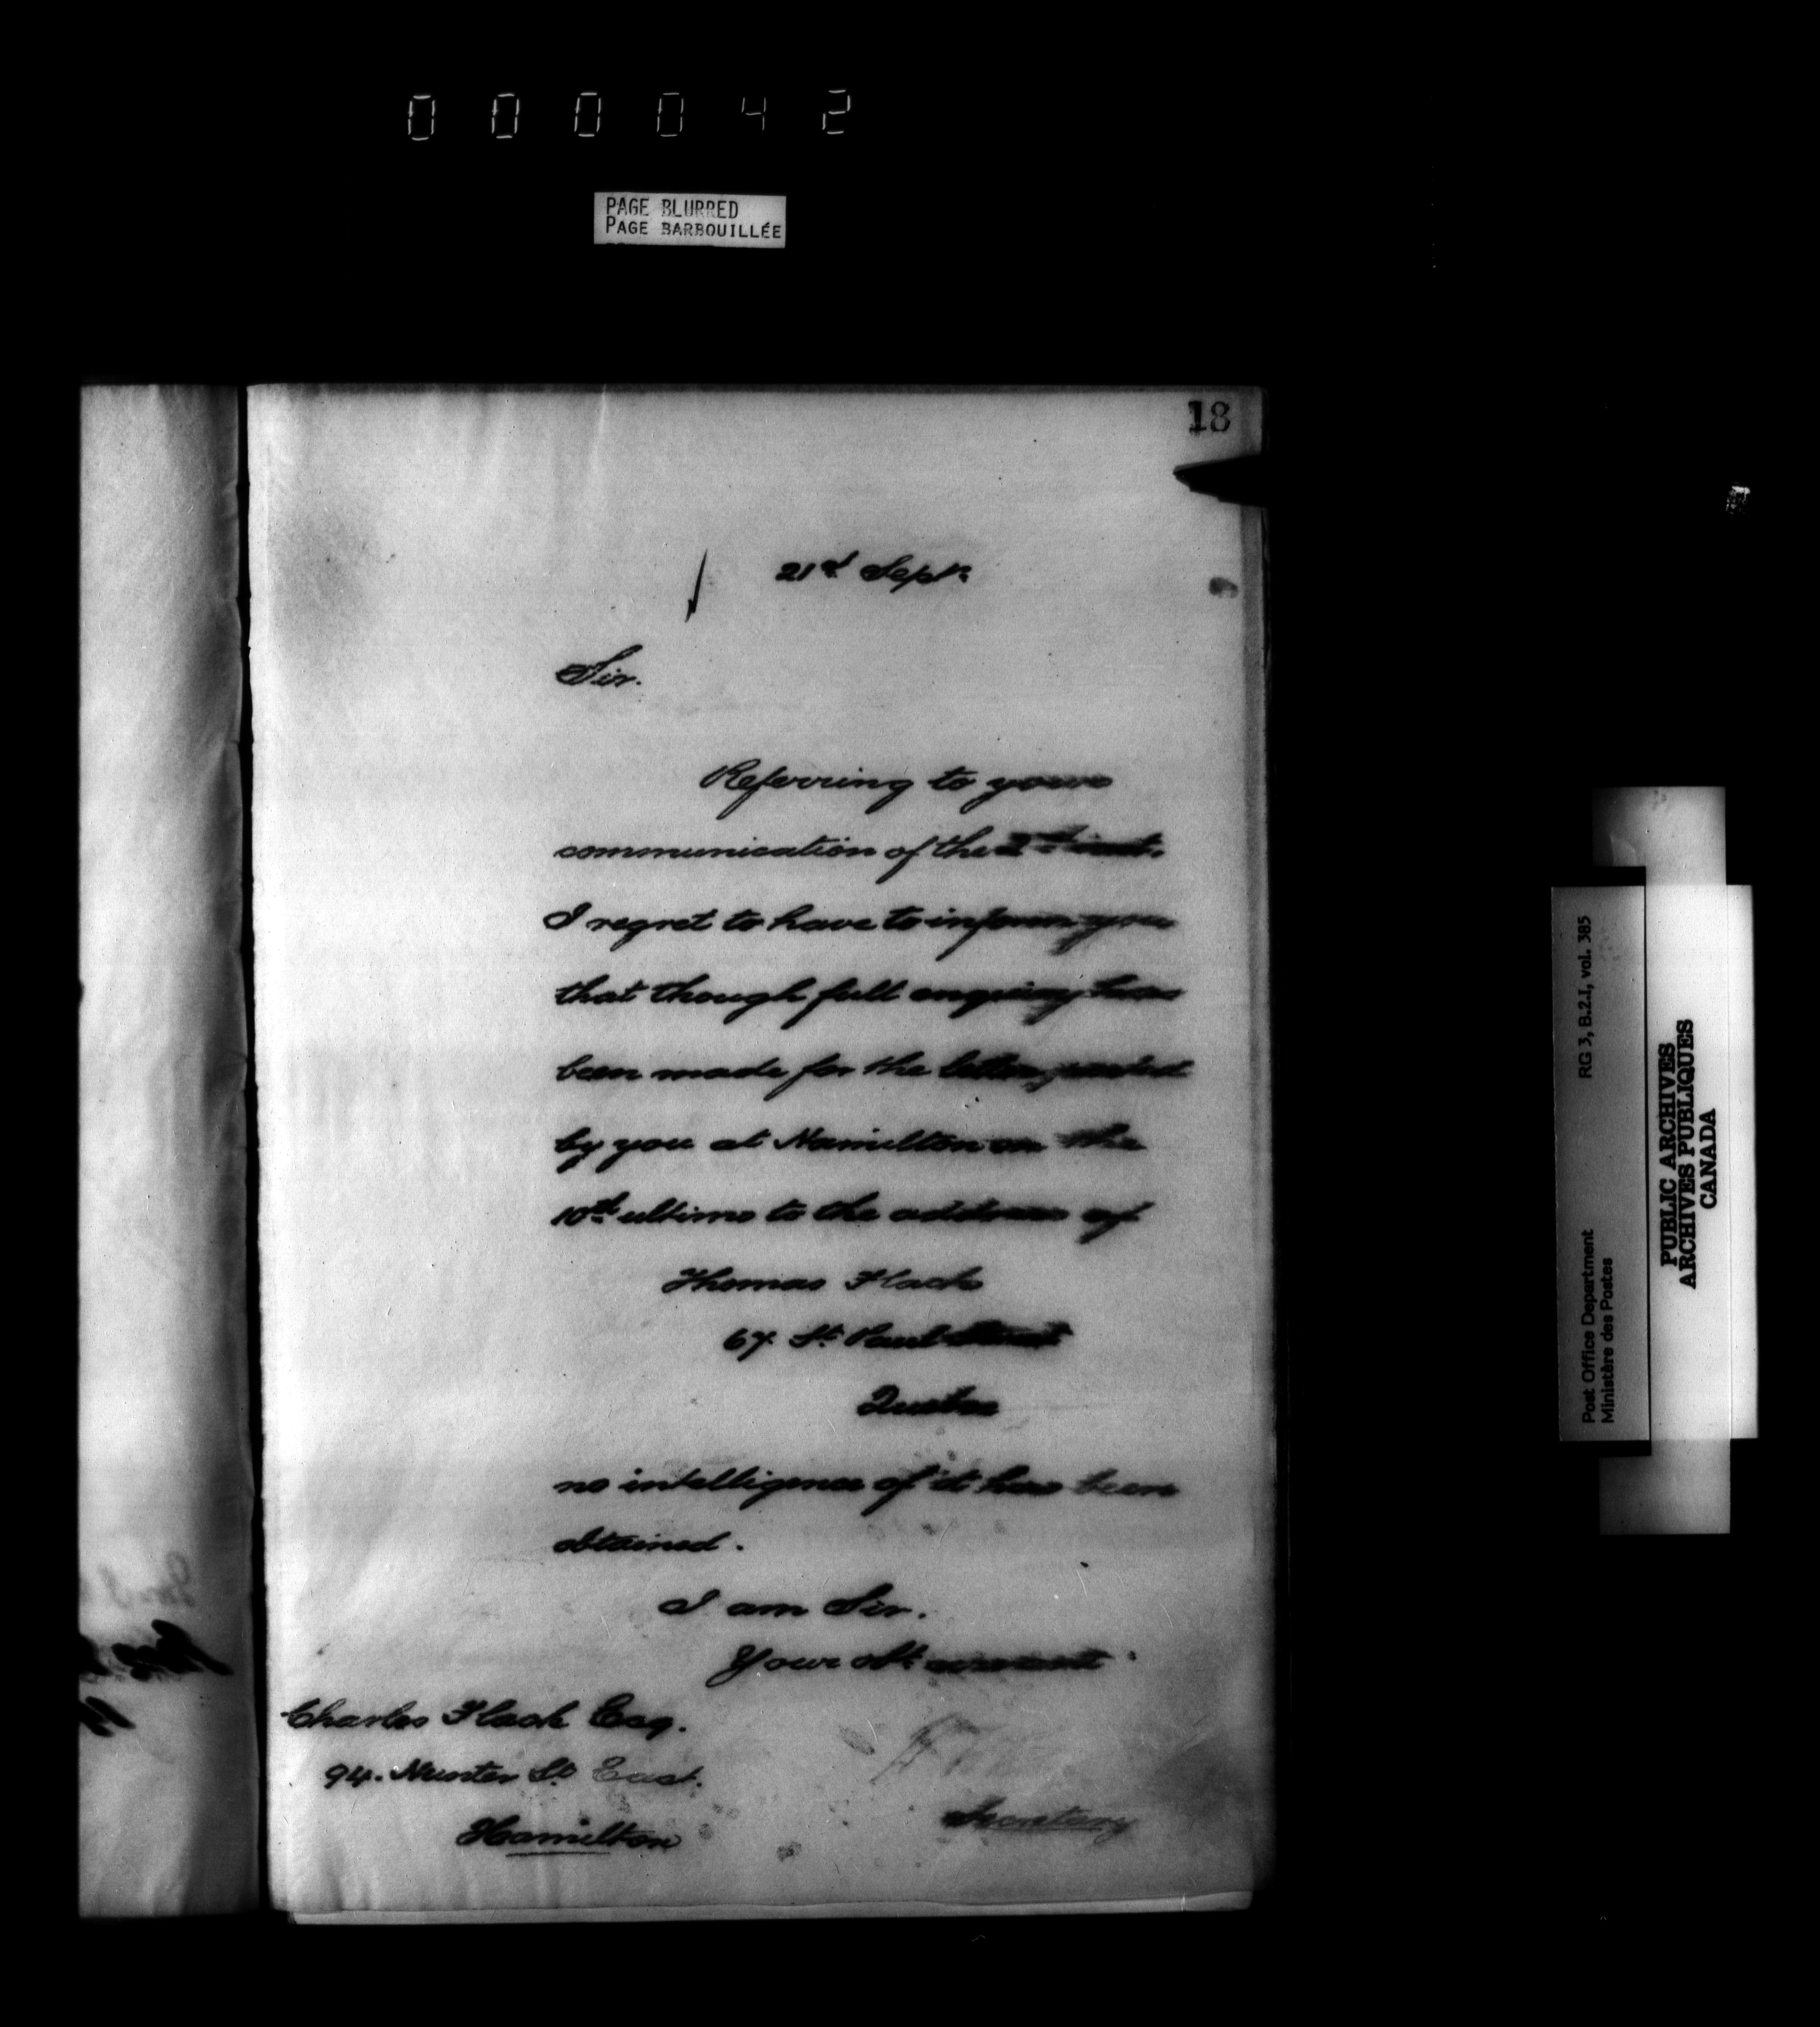 000042
PAGE BLURRED
PAGE BARBOUILLÉE
18
21st Sept.
Sir.
Referring to your
communication of the inst.
I regret to have to inform you
that though full enquiry has
been made for the letter, posted
by you at Hamilton on the
10th ultimo to the address of
Thomas Flack
67 St Paul Street
Quebec
no intelligence of it has been
obtained.
I am Sir.
Your obt servant
Charles Flack Esq.
94. Hunter St East.
Hamilton
Secretary
Post Office Department RG 3, B.2.I, vol. 385
Ministère des Postes
PUBLIC ARCHIVES
ARCHIVES PUBLIQUES
CANADA